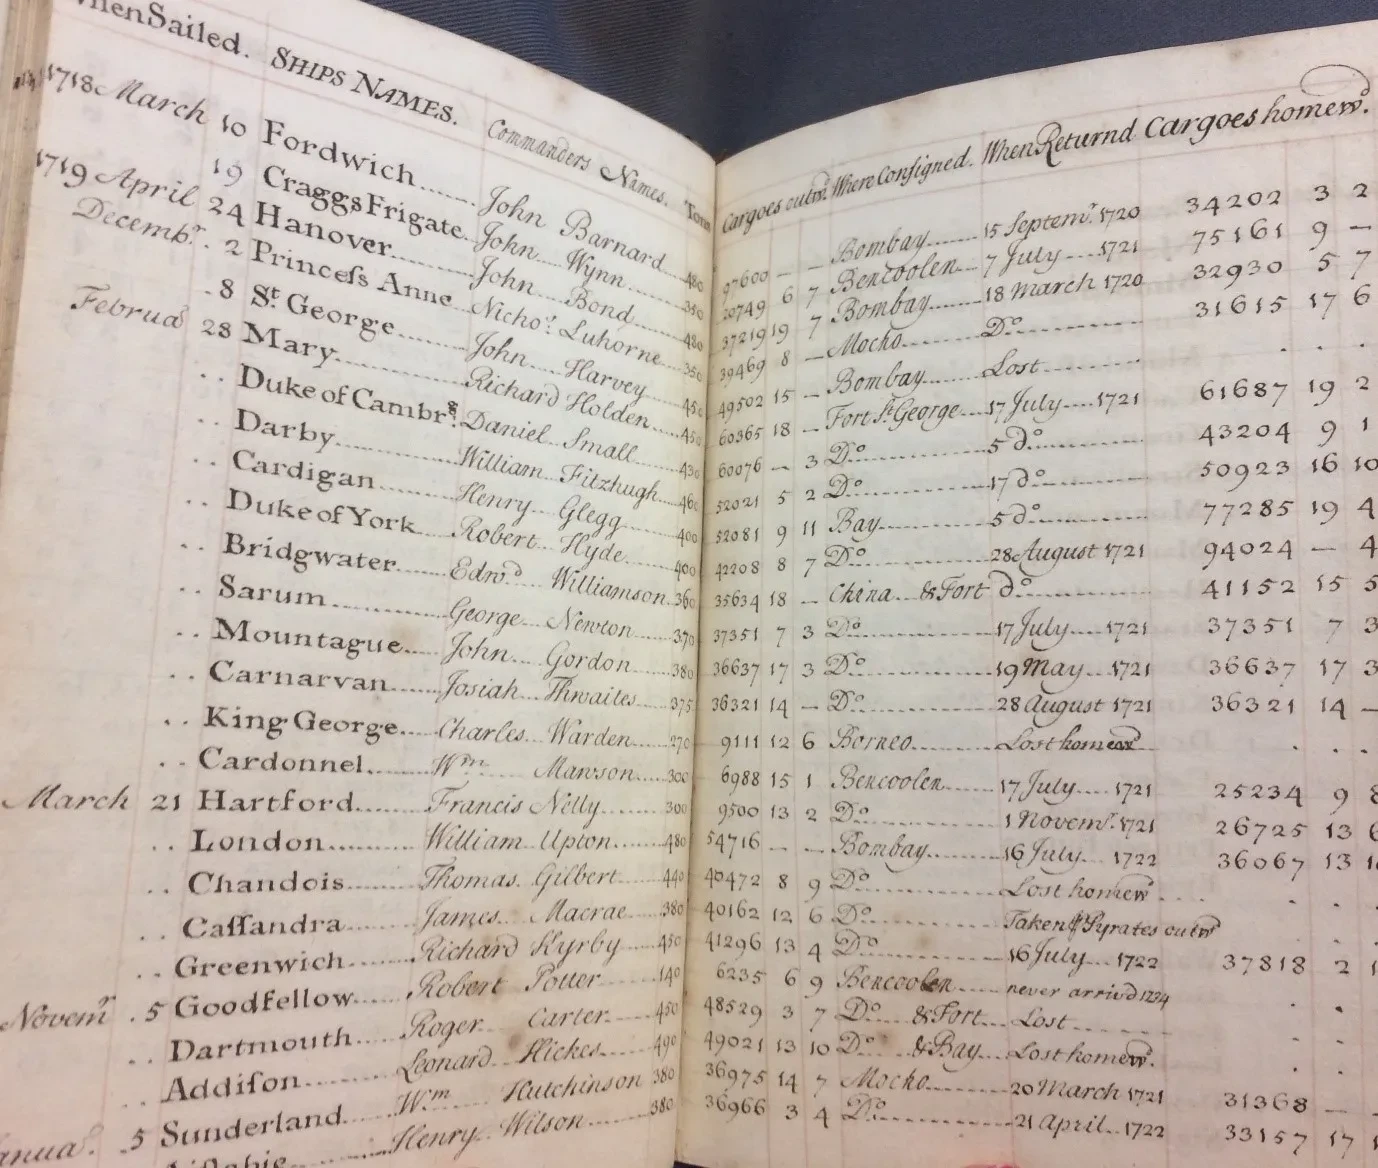 When Sailed. SHIPS NAMES. Commanders Names. Tonn
1718 March 10 Fordwich John Barnard 480
19 Craggs Frigate John Wynn 350
1719 April 24 Hanover John Bond 480
Decembr. 2 Princeſs Anne Nichos. Luhorne 350
8 St. George John Harvey 450
Februa 28 Mary Richard Holden 450
Duke of Cambrg. Daniel Small 430
Darby William Fitzhugh 460
Cardigan Henry Glegg 400
Duke of York Robert Hyde 400
Bridgwater Edwd. Williamson 360
Sarum George Newton 370
Mountague John Gordon 380
Carnarvan Josiah Thwaites 375
King George Charles Warden 270
Cardonnel Wm. Mawson 300
March 21 Hartford Francis Nelly 300
London William Upton 480
Chandois Thomas Gilbert 440
Caſſandra James Macrae 380
Greenwich Richard Kyrby 450
Goodfellow Robert Potter 140
Novemr. 5 Dartmouth Roger Carter 450
Addiſon Leonard Hickes 490
Sunderland Wm. Hutchinson 380
5 Henry Wilson 380
Cargoes outwd. Where Conſigned. When Returnd Cargoes homewd.
97600 — — Bombay 15 Septemr. 1720 34202 3 2
20749 6 7 Bencoolen 7 July 1721 75161 9 —
37219 19 7 Bombay 18 March 1720 32930 5 7
39469 8 — Mocho Do. 31615 17 6
49502 15 — Bombay Lost
60365 18 — Fort St. George 17 July 1721 61687 19 2
60076 — 3 Do. 5 do. 43204 9 1
52021 5 2 Do. 17 do. 50923 16 10
52081 9 11 Bay 5 do. 77285 19 4
42208 8 7 Do. 28 August 1721 94024 — 4
35634 18 — China & Fort do. 41152 15 5
37351 7 3 Do. 17 July 1721 37351 7 3
36637 17 3 Do. 19 May 1721 36637 17 3
36321 14 — Do. 28 August 1721 36321 14 —
9111 12 6 Borneo Lost homewd
6988 15 1 Bencoolen 17 July 1721 25234 9 8
9500 13 2 Do. 1 Novemr. 1721 26725 13 6
54716 — — Bombay 16 July 1722 36067 13 1
40472 8 9 Do. Lost homewd.
40162 12 6 Do. Taken Pyrates outwd
41296 13 4 Do. 16 July 1722 37818 2 1
6235 6 9 Bencoolen never arriv'd 1724
48529 3 7 Do. & Fort Lost
49021 13 10 Do. & Bay Lost homewd.
36975 14 7 Mocho 20 March 1721 31368 —
36966 3 4 Do. 21 April 1722 33157 17